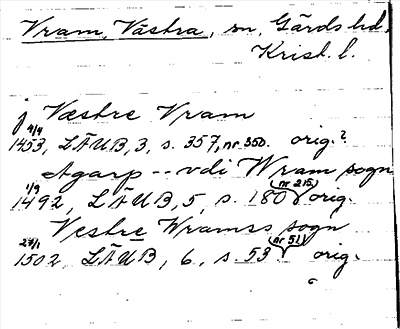 Vram, Västra, sn, Gärds hd,
Krist. l.
j Vestre Vram
4/4
1453, LÄUB, 3, s. 357, nr 350. orig.?
Agarp -- vdi Wram sogn
1/9
1492, LÄUB, 5, s. 180 (nr 215) orig.
Vestre Wramss sogn
27/1
1502, LÄUB, 6, s. 53 (nr 51) orig.